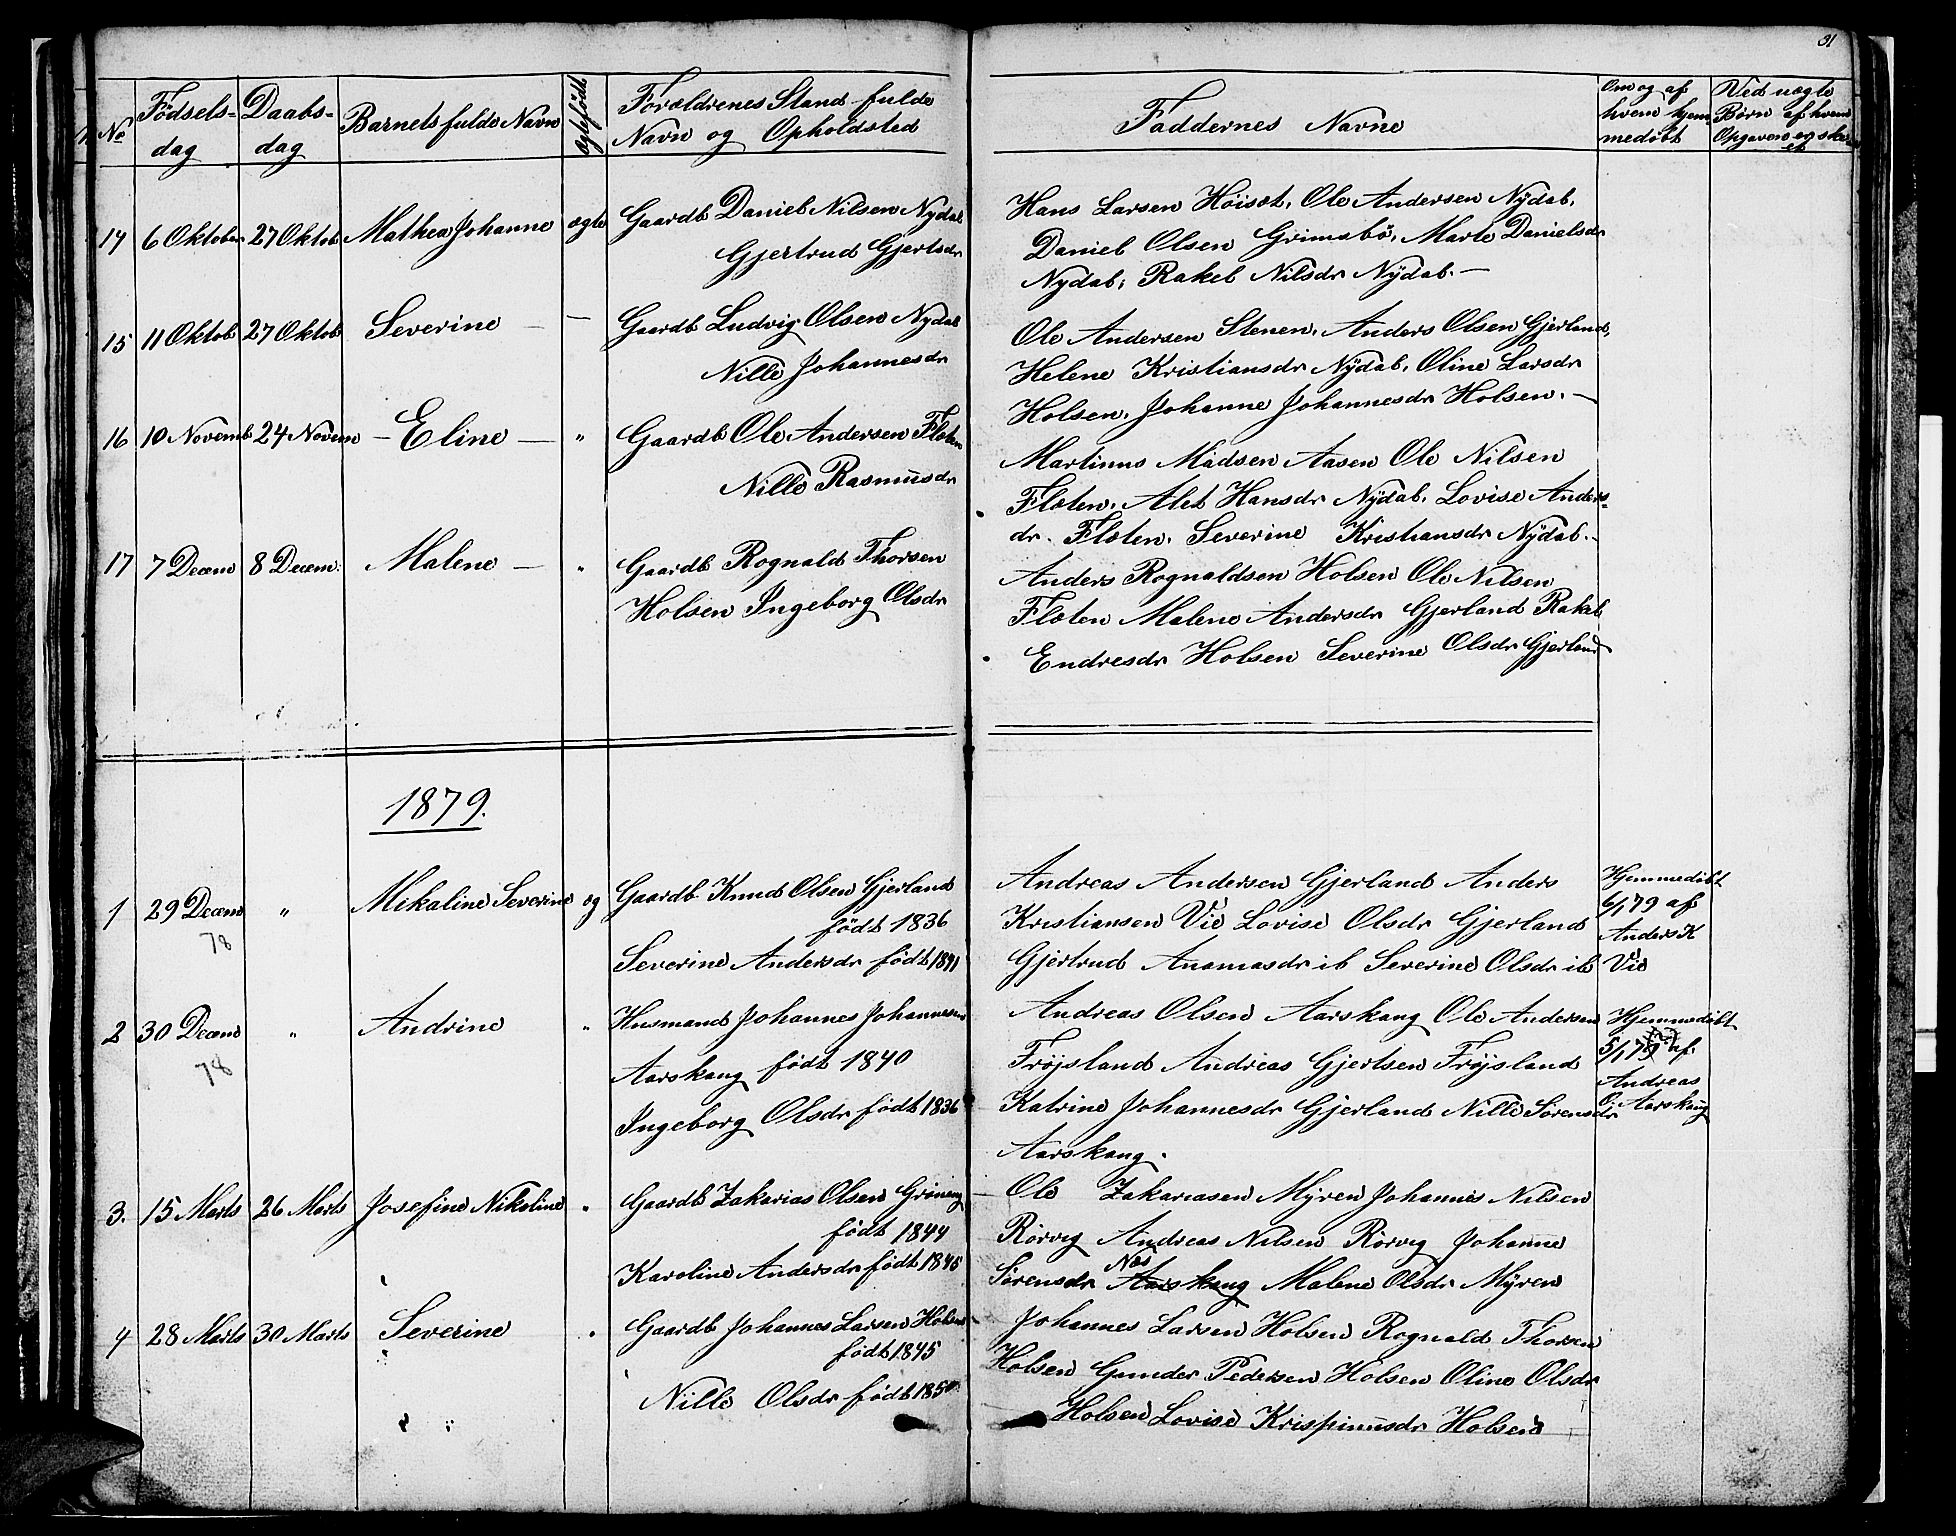 31
No
Fødsels-
dag
Daabs-
dag
Barnets fulde Navn
ægtefødt
Forældrenes Stand fulde
Navn og Opholdsted
Faddernes Navne
Om og af
hvem hjem
medøbt
Ved uægte
Børn af hvem
Opgaven og
14 6 Oktober 27 Oktob Mathea Johanne ægte Gaardb Daniel Nilsen Nydal
Gjertrud Gjertsdr
Hans Larsen Höisæt, Ole Andersen Nydal,
Daniel Olsen Grimsbö, Marte Danielsdr
Nydal, Rakel Nilsdr Nydal. —
15 11 Oktob 27 Oktob Severine — — Gaardb Ludvig Olsen Nydal
Nille Johannesdr
Ole Andersen Stenen, Anders Olsen Gjerland,
Helene Kristiansdr Nydal, Oline Larsdr
Holsen, Johanne Johannesdr Holsen. —
16 10 Novemb 24 Novem — Eline — " Gaardb Ole Andersen Flöten
Nille Rasmusdr
Martinus Madsen Aasen Ole Nilsen
Flöten, Alet Hansdr Nydal, Lovise Anders-
dr. Flöten, Severine Kristiansdr Nydal. -
17 7 Decem 8 Decem. Malene — " Gaardb Rognald Thorsen
Holsen Ingeborg Olsdr
Anders Rognaldsen Holsen Ole Nilsen
Flöten Malene Andersdr Gjerland Rakel
Endresdr Holsen Severine Olsdr Gjerland
1879.
1 29 Decem " Mikaline Severine æg Gaardb Knud Olsen Gjerland
78
født 1836
Severine Andersdr født 1841
Andreas Andersen Gjerland Anders
Kristiansen Vie Lovise Olsdr Gjerland
Gjertrud Ananiasdr ib Severine Olsdr ib
Hjemmedøbt
6/1 79 af
Anders K
Vie
2 30 Decem " Andrine " Husmand Johannes Johannesen
78
Aarskaug født 1840
Ingeborg Olsdr født 1836
Andreas Olsen Aarskaug Ole Andersen
Fröjsland Andreas Gjertsen Fröjsland
Katrine Johannesdr Gjerland Nille Sörensdr
Aarskaug.
Hjemmedøbt
5/1 79 af.
Andreas
O. Aarskaug
3. 15 Marts 26 Marts Josefine Nikoline " Gaardb Zakarias Olsen Gröning
født 1844
Karoline Andersdr født 1845
Ole Zakariasen Myren Johannes Nilsen
Rörvig Andreas Nilsen Rörvig Johanne
Næs
Sörensdr Aarskaug Malene Olsdr Myren
4 28 Marts 30 Marts Severine " Gaardb Johannes Larsen Holsen
født 1845
Nille Olsdr født 185
Johannes Larsen Holsen Rognald Thorsen
Holsen Gunder Pedersen Holsen Oline Olsdr
Holsen Lovise Krispinusdr Holsen